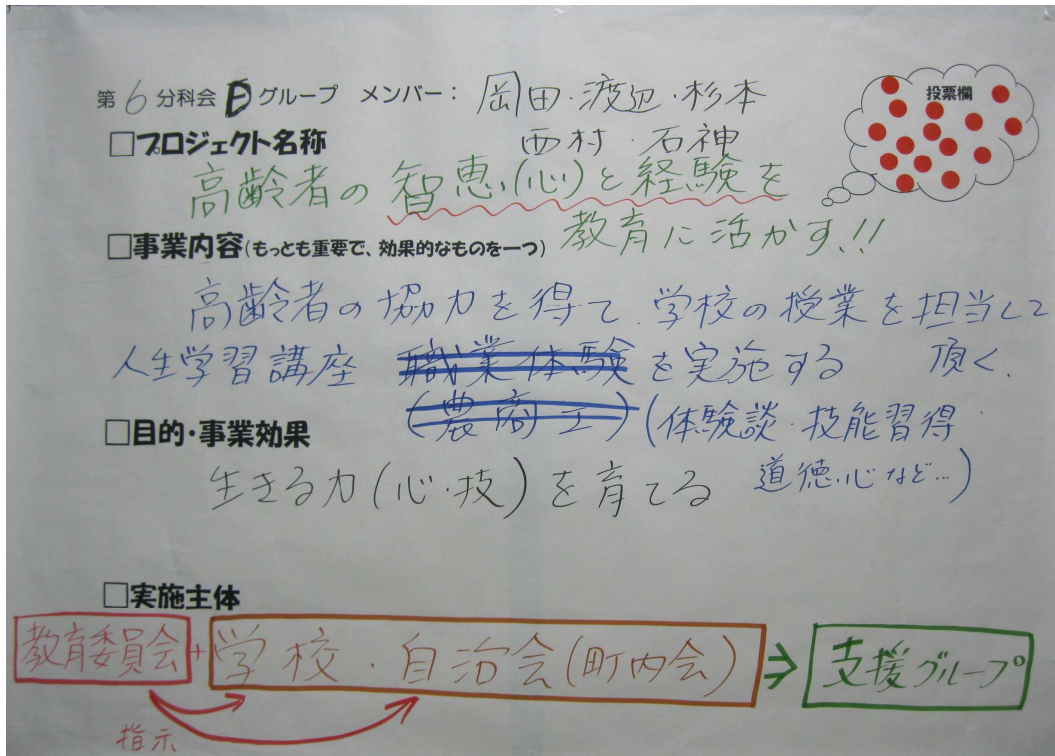 第6分科会 Eグループ メンバー： 岡田・渡辺・杉本
西村・石神
投票欄
□プロジェクト名称
高齢者の智恵(心)と経験を
教育に活かす!!
□事業内容(もっとも重要で、効果的なものを一つ)
高齢者の協力を得て、学校の授業を担当して
頂く。
人生学習講座 職業体験を実施する
(農商工) (体験談・技能習得
道徳・心など…)
□目的・事業効果
生きる力(心・技)を育てる
□実施主体
教育委員会+学校・自治会(町内会)⇒支援グループ
指示